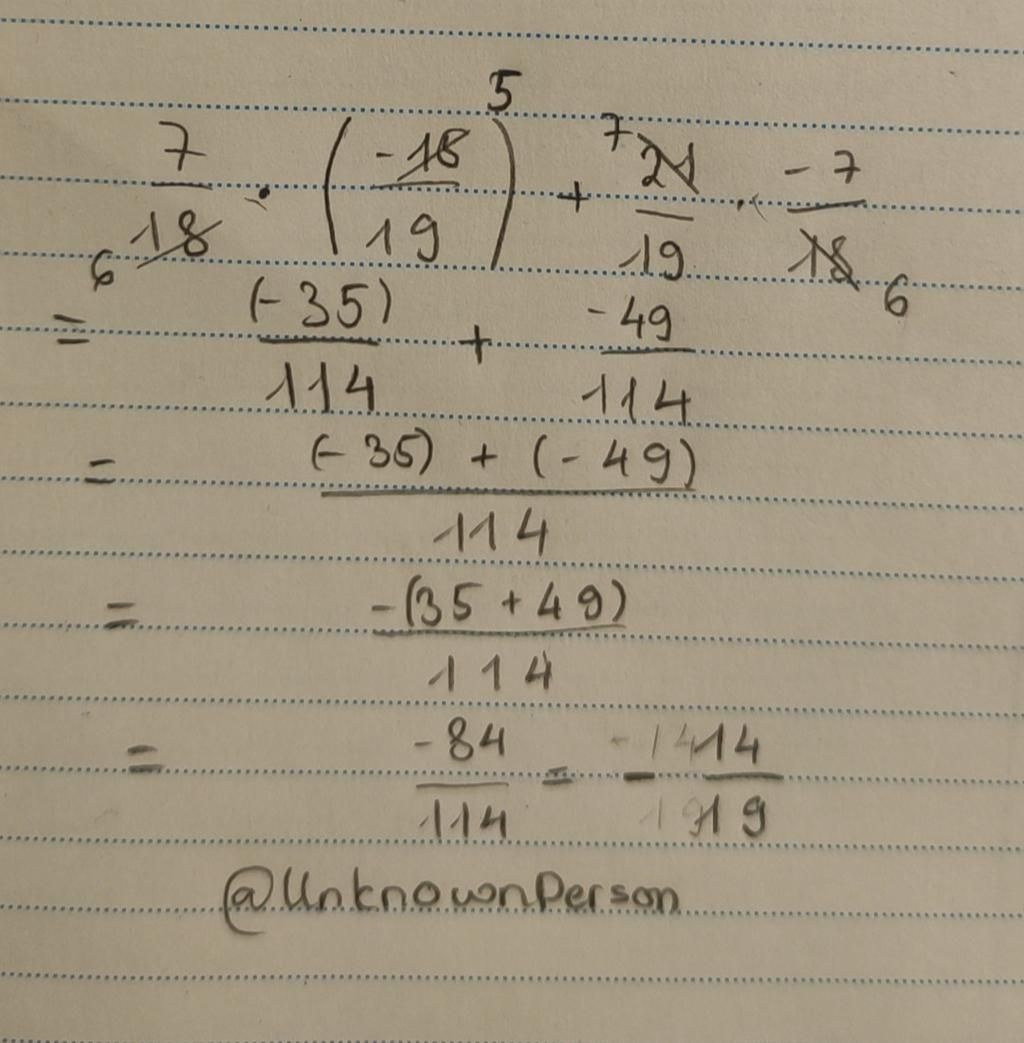 5
7/18 · (-15/19) + 7 21/19 · -7/18
6 6
= (-35)/114 + -49/114
= (-35) + (-49)/114
= -(35 + 49)/114
= -84/114 = -14/19
@UnknownPerson